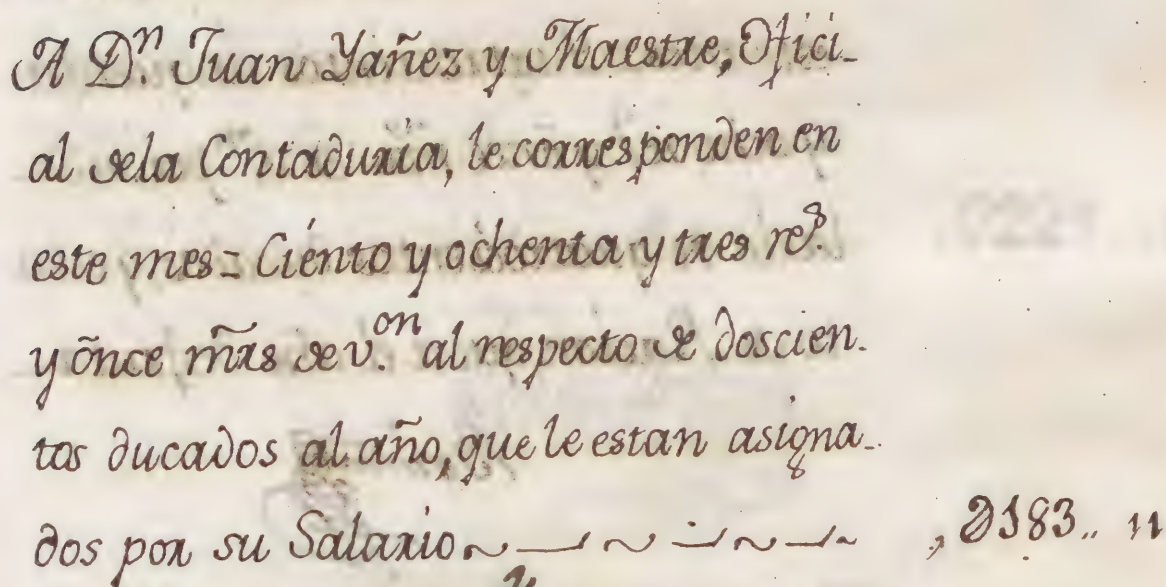 A D.ⁿ Juan Yañez y Maestre, Ofici-
al dela Contaduria, le corresponden en
este mes = Ciento y ochenta y tres r.ˢ
y õnce mr̃s de v.ᵒⁿ al respecto de doscien-
tos ducados al año, que le estan asigna-
dos por su Salario ~ — ~ — ~ — ~ , D183.. 11